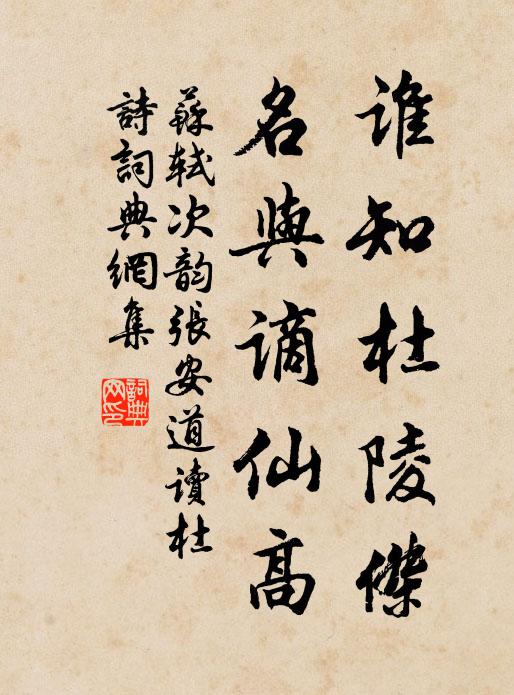 谁知杜陵傑
名與謫仙高
蘇軾次韵張安道讀杜
詩詞典網集
詞典网印